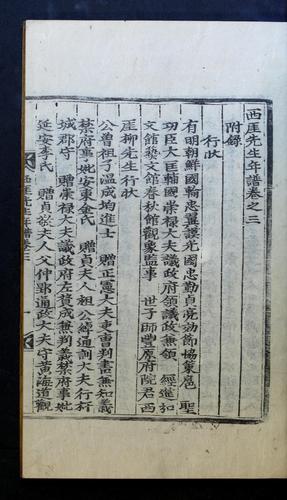 西厓先生年譜卷之三
附錄
行狀
有明朝鮮國輸忠翼謨光國忠勤貞亮効節協策扈聖
功臣大匡輔國崇祿大夫議政府領議政兼領 經筵弘
文館藝文館春秋館觀象監事 世子師豊原府院君西
厓柳先生行狀
公曾祖子溫成均進士 贈正憲大夫吏曹判書兼知義
禁府事妣安東金氏 贈貞夫人祖公綽通訓大夫行杆
城郡守 贈崇祿大夫議政府左贊成兼判義禁府事妣
延安李氏 贈貞敬夫人父仲郢通政大夫守黃海道觀
西厓先生年譜卷三